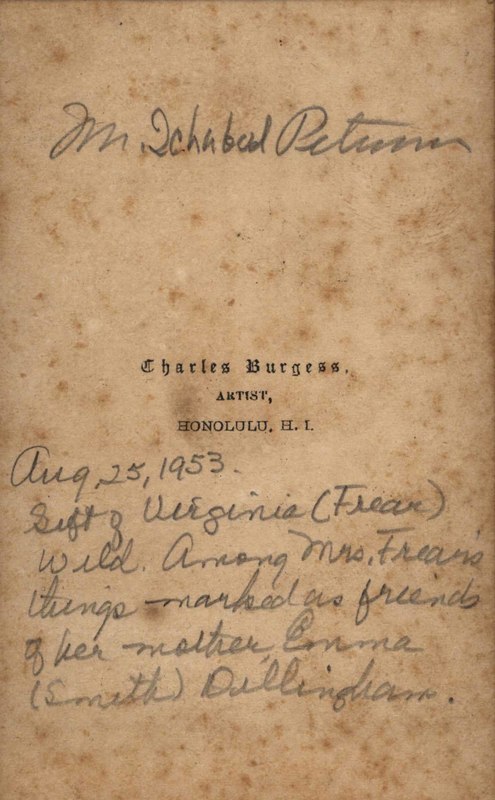 Mr. Ichabod
Charles Burgess,
ARTIST,
HONOLULU, H. I.
Aug. 25, 1953.
Gift of Virginia (Frear)
Wild. Among Mrs. Frear's
things marked as friends
of her mother, Emma
(Smith) Dillingham.